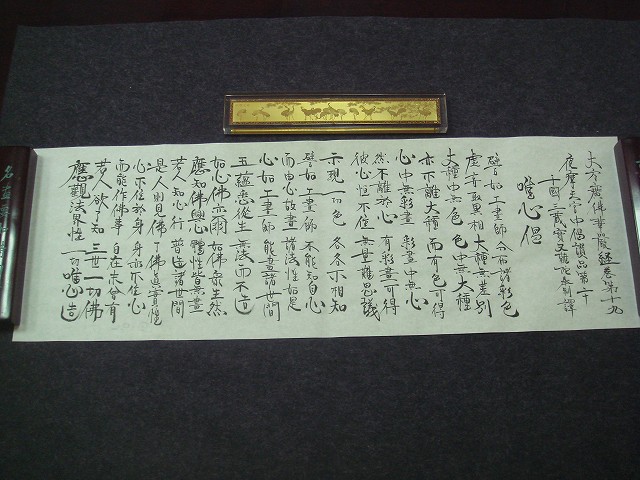 大方廣佛華嚴經卷第十九
夜摩天宮中偈讚品第二十
于國三藏實叉難陀奉制譯
唯心偈
譬如工畫師 分布諸彩色
虛妄取異相 大種無差別
大種中無色 色中無大種
亦不離大種 而有色可得
心中無彩畫 彩畫中無心
然不離於心 有彩畫可得
彼心恒不住 無量難思議
示現一切色 各各不相知
譬如工畫師 不能知自心
而由心故畫 諸法性如是
心如工畫師 能畫諸世間
五蘊悉從生 無法而不造
如心佛亦爾 如佛眾生然
應知佛與心 體性皆無盡
若人知心行 普造諸世間
是人則見佛 了佛真實性
心不住於身 身亦不住心
而能作佛事 自在未曾有
若人欲了知 三世一切佛
應觀法界性 一切唯心造